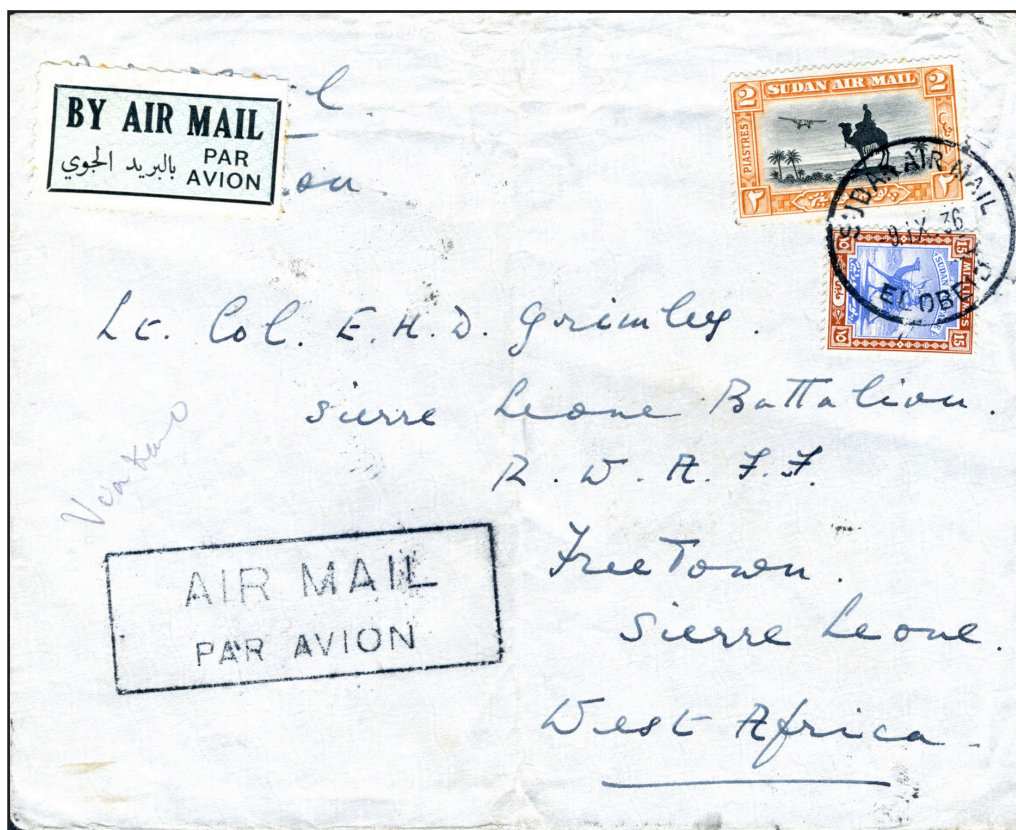 BY AIR MAIL
بالبريد الجوي
PAR
AVION
2 SUDAN AIR MAIL 2
PIASTRES
٢ ٢
SUDAN AIR MAIL
IX 36
EL OBEID
15 MILLIEMES 15
SUDAN
١٥ ١٥
15
Lt. Col. E. H. D. Grimley.
Sierre Leone Battalion.
R. W. A. F. F.
Free Town.
Sierre Leone.
West Africa.
AIR MAIL
PAR AVION